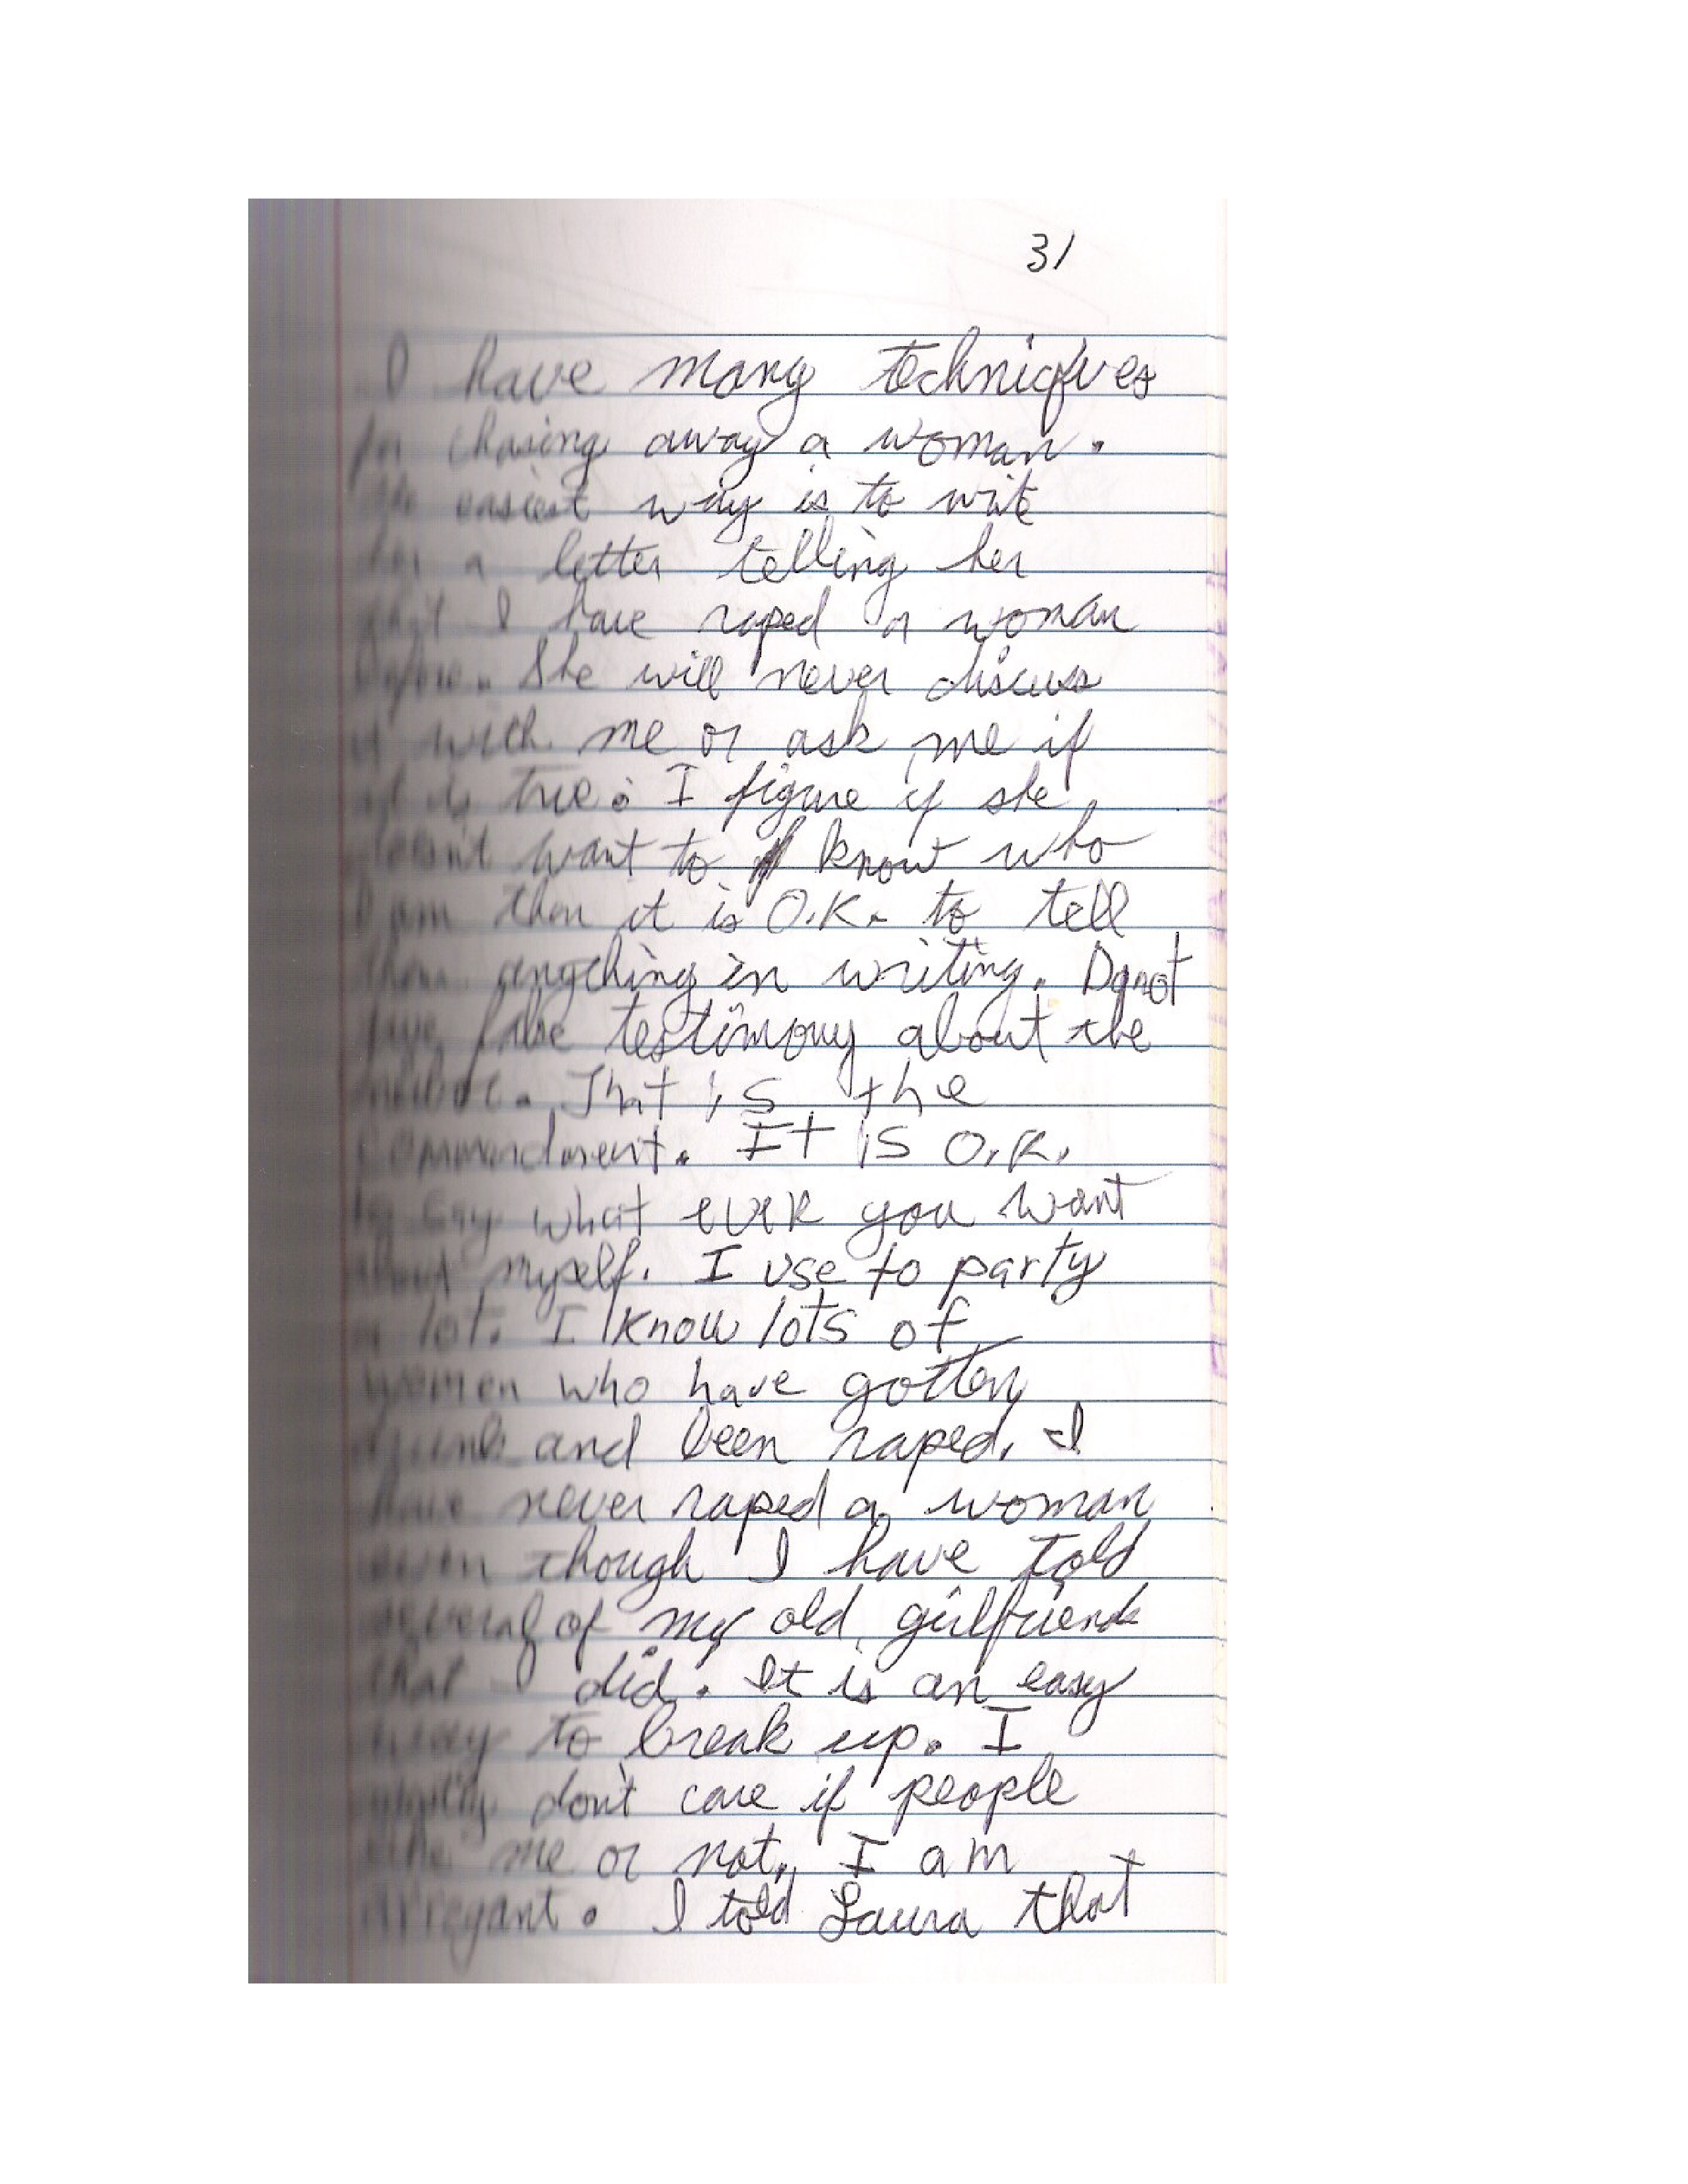 31
I have many techniques
for chasing away a woman.
the easiest way is to write
her a letter telling her
that I have raped a woman
before. She will never discuss
it with me or ask me if
it is true. I figure if she
doesn't want to know who
I am then it is O.K. to tell
them anything in writing. Do not
give false testimony about the
That is the
commandment. It is O.K.
to say what ever you want
about myself. I use to party
a lot. I know lots of
women who have gotten
drunk and been raped. I
have never raped a woman
even though I have told
several of my old girlfriends
that I did. It is an easy
way to break up. I
don't care if people
like me or not. I am
arregant. I told Laura that